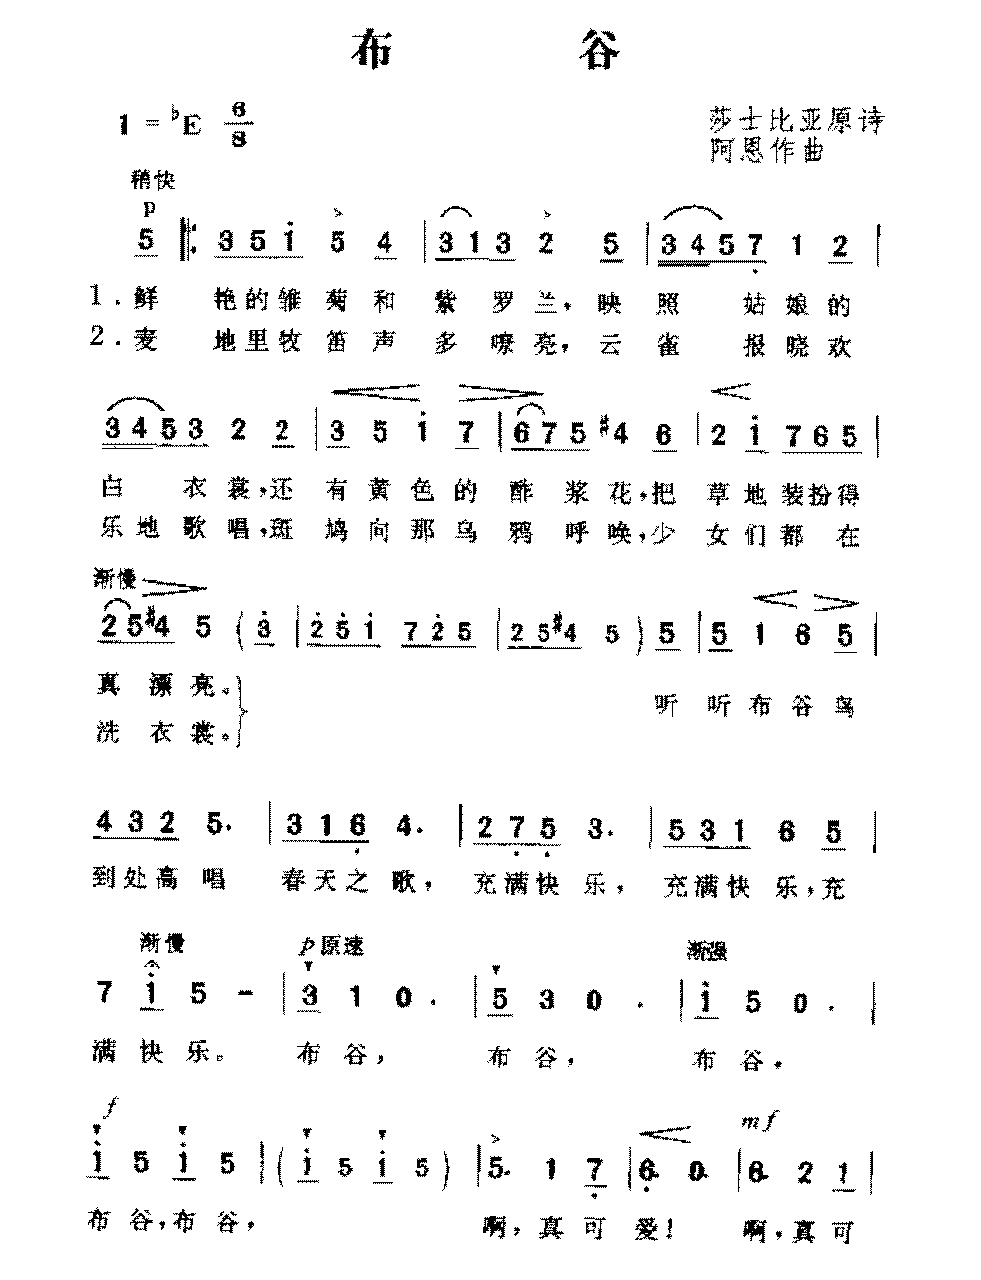 布 谷
1 = ♭E 6/8
莎士比亚原诗
阿恩作曲
稍快
p
5 ‖: 3 5 i 5 4 | 3 1 3 2 5 | 3 4 5 7 1 2 |
1.鲜 艳的雏菊和紫罗兰,映照 姑娘的
2.麦 地里牧笛声多嘹亮,云雀 报晓欢
3 4 5 3 2 2 | 3 5 i 7 | 6 7 5 #4 6 | 2 i 7 6 5 |
白 衣裳,还有黄色的酢浆花,把草地装扮得
乐地歌唱,斑鸠向那乌鸦呼唤,少女们都在
渐慢
2 5 #4 5 ( 3 | 2 5 1 7 2 5 | 2 5 #4 5 ) 5 | 5 1 6 5 |
真漂亮。
听听布谷鸟
洗衣裳。
4 3 2 5. | 3 1 6 4. | 2 7 5 3. | 5 3 1 6 5 |
到处高唱 春天之歌, 充满快乐, 充满快乐,充
渐慢 p原速 渐强
7 i 5 - | 3 1 0. | 5 3 0. | i 5 0. |
满快乐。 布谷, 布谷, 布谷.
f mf
i 5 i 5 | ( i 5 i 5 ) | 5. 1 7 | 6. 0. | 6. 2 1 |
布谷,布谷, 啊,真可爱! 啊,真可